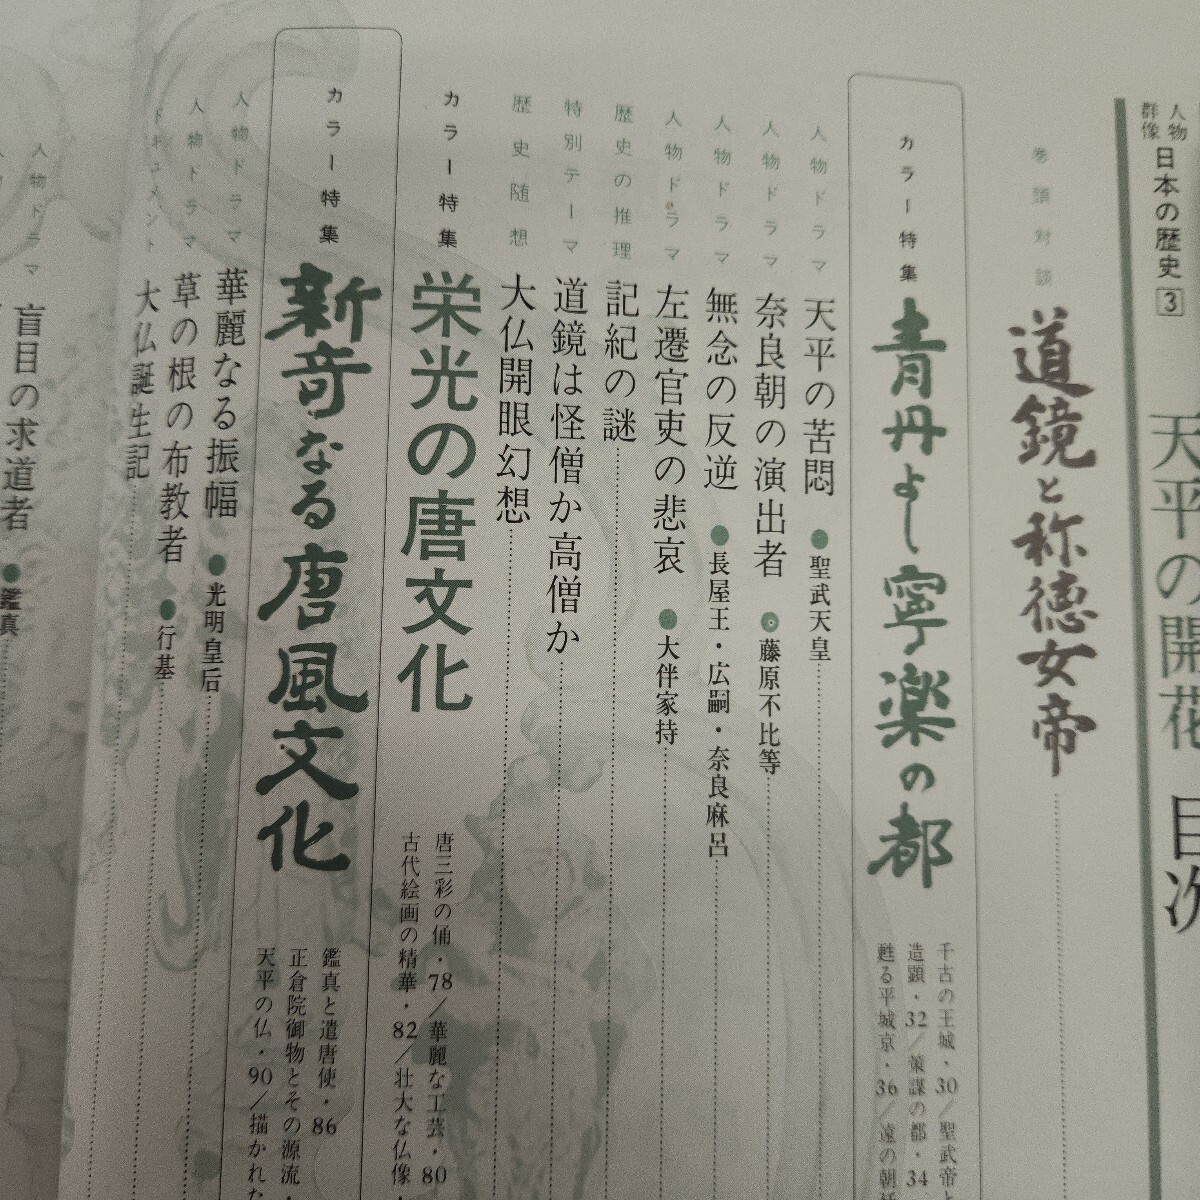 人物群像
日本の歴史 3
天平の開花 目次
巻頭対談
道鏡と称徳女帝
カラー特集
青丹よし寧楽の都
千古の王城・30／聖武帝と
造顕・32／策謀の都・34
甦る平城京・36／遠の朝
人物ドラマ 天平の苦悶 ●聖武天皇
人物ドラマ 奈良朝の演出者 ●藤原不比等
人物ドラマ 無念の反逆 ●長屋王・広嗣・奈良麻呂
人物ドラマ 左遷官吏の悲哀 ●大伴家持
歴史の推理 記紀の謎
特別テーマ 道鏡は怪僧か高僧か
歴史随想 大仏開眼幻想
カラー特集
栄光の唐文化
唐三彩の俑・78／華麗な工芸・80
古代絵画の精華・82／壮大な仏像・
カラー特集
新奇なる唐風文化
鑑真と遣唐使・86
正倉院御物とその源流・
天平の仏・90／描かれた
人物ドラマ 華麗なる振幅 ●光明皇后
人物ドラマ 草の根の布教者 ●行基
ドキュメント 大仏誕生記
人物ドラマ 盲目の求道者 ●鑑真